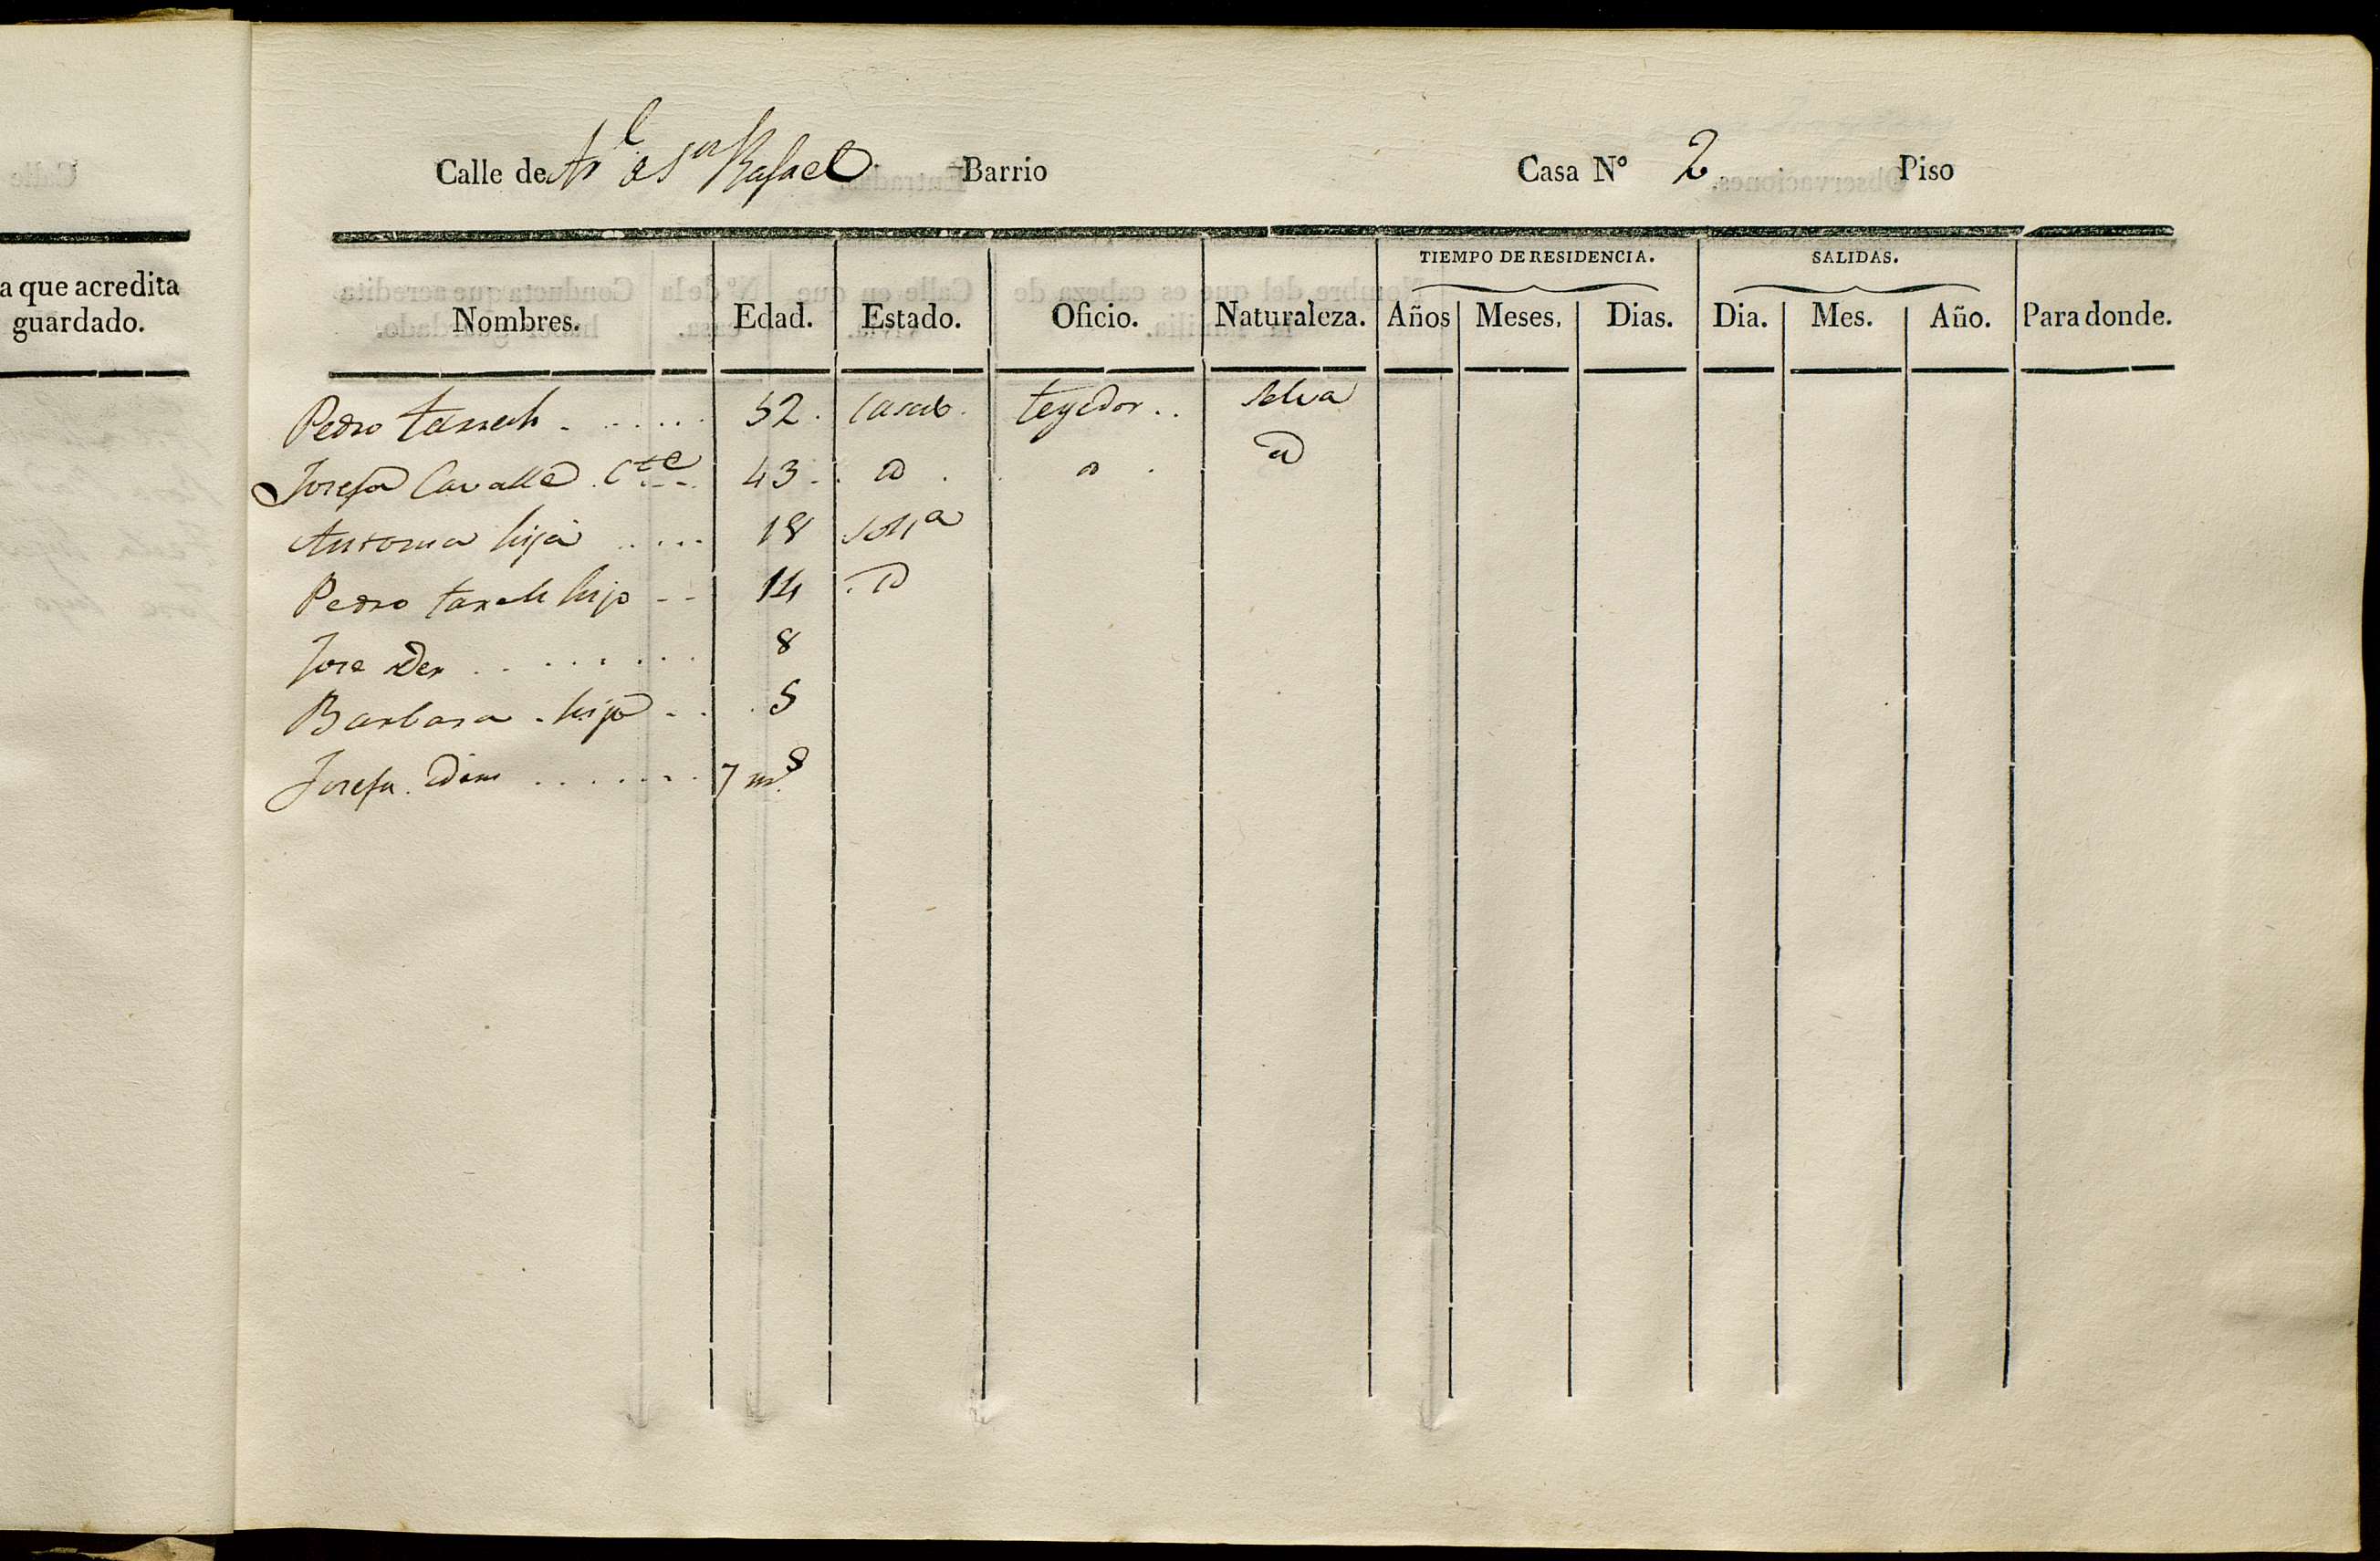 a que acredita
guardado.
Calle de Arl de Sn Rafael Barrio Casa Nº 2 Piso
TIEMPO DE RESIDENCIA. SALIDAS.
Nombres. Edad. Estado. Oficio. Naturaleza. Años Meses. Dias. Dia. Mes. Año. Para donde.
Pedro 52. Casado. tegedor.. Selva
Josefa Cavalle Cte 43
Antonia hija 18 solta
Pedro hijo 14
Jose idem 8
Barbara hija 5
Josefa idem 7 ms